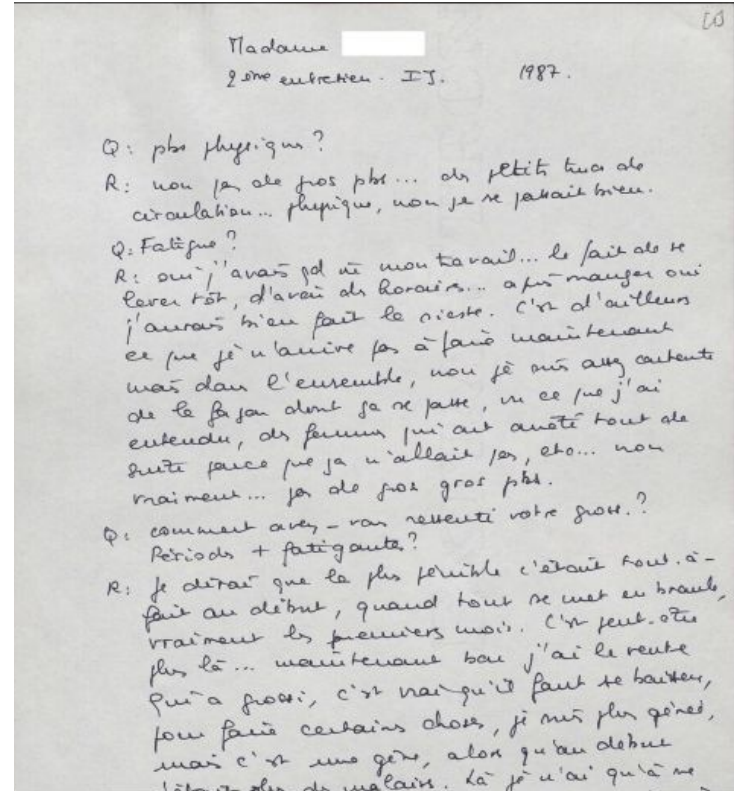 Madame
2ème entretien - IJ. 1987.
Q: pbs physiques?
R: non pas de gros pbs... des petits trucs de
circulation... physique, non je me
bien.
Q: Fatigue?
R: oui j'avais gd mon travail... le fait de se
lever tôt, d'avoir des horaires... après manger oui
j'aurais bien fait la sieste. C'est d'ailleurs
ce que je n'arrive pas à faire maintenant
mais dans l'ensemble, non je suis assez contente
de la façon dont ça se passe, vu ce que j'ai
entendu, des femmes qui ont arrêté tout de
suite parce que ça n'allait pas, etc... non
vraiment... pas de gros gros pbs.
Q: comment avez-vous ressenti votre gross.?
Périodes + fatigantes?
R: je dirai que le plus pénible c'était tout-à-
fait au début, quand tout se met en branle,
vraiment les premiers mois. C'est peut-être
plus là... maintenant bon j'ai le ventre
qui a grossi, c'est vrai qu'il faut se baisser,
pour faire certaines choses, je suis plus gênée,
mais c'est une gêne, alors qu'au début
c'était plus des malaises. Là je n'ai qu'à me